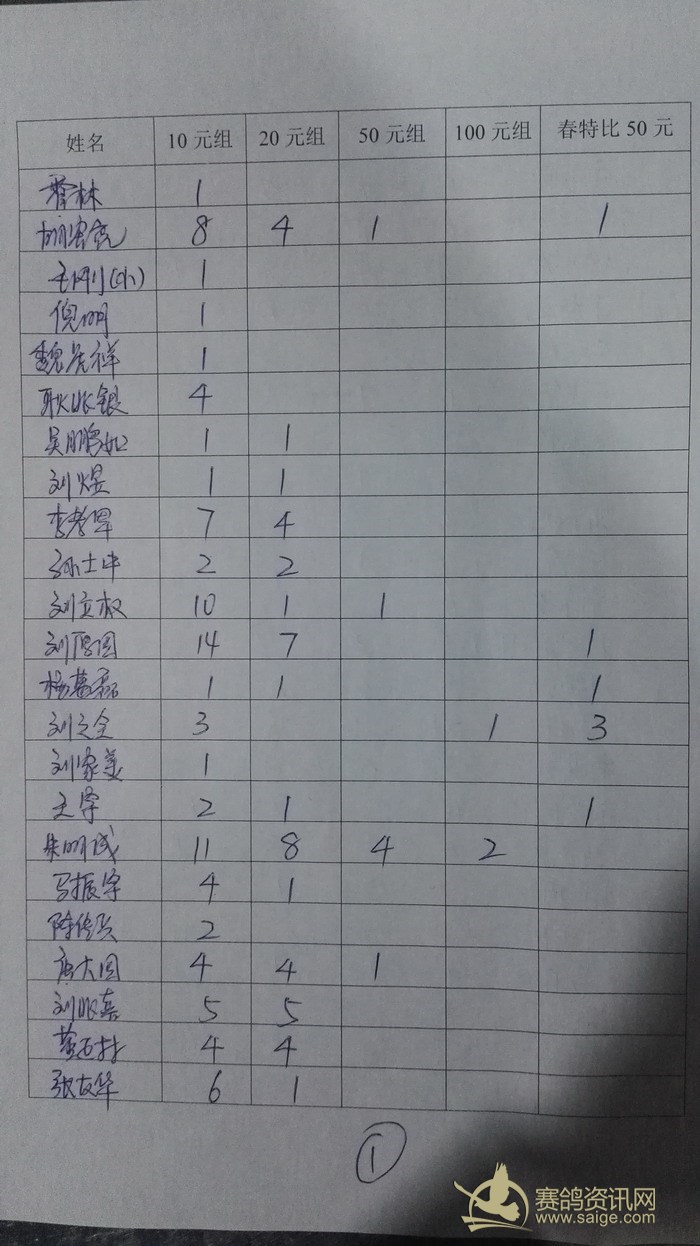 姓名 10元组 20元组 50元组 100元组 春特比50元
林 1
8 4 1 1
王刚(小) 1
倪明 1
魏居祥 1
耿兆银 4
吴鹏 1 1
刘煜 1 1
李孝军 7 4
孙士中 2 2
刘立权 10 1 1
刘厚国 14 7 1
杨慕磊 1 1 1
刘之全 3 1 3
刘家美 1
王宇 2 1 1
朱明成 11 8 4 2
马振宇 4 1
陈传兵 2
唐大国 4 4 1
刘兆 5 5
黄石 4 4
张友华 6 1
①
赛鸽资讯网
www.saige.com